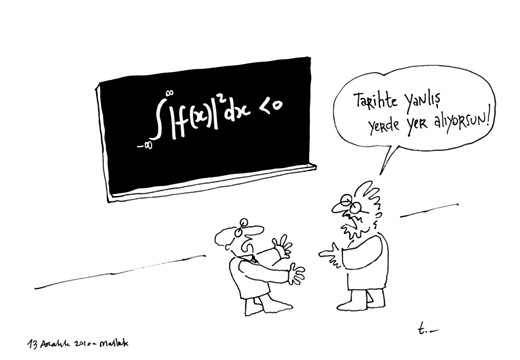 ∫_{-∞}^{∞} |f(x)|² dx < 0
Tarihte yanlış
yerde yer alıyorsun!
13 Aralık 2010 - Maslak
t. –